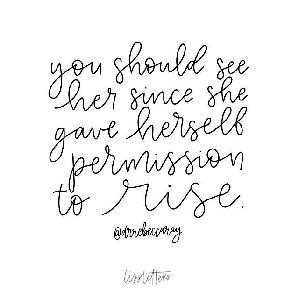 you should see
her since she
gave herself
permission
to rise.
@drrebeccaray